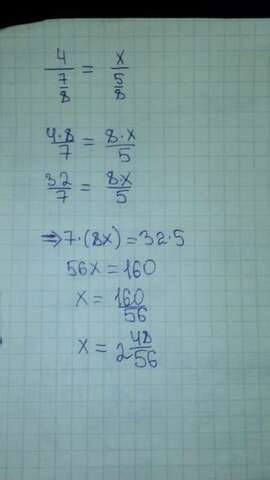 4/(7/8) = x/(5/8)
4·8/7 = 8·x/5
32/7 = 8x/5
⇒ 7·(8x) = 32·5
56x = 160
x = 160/56
x = 2 48/56